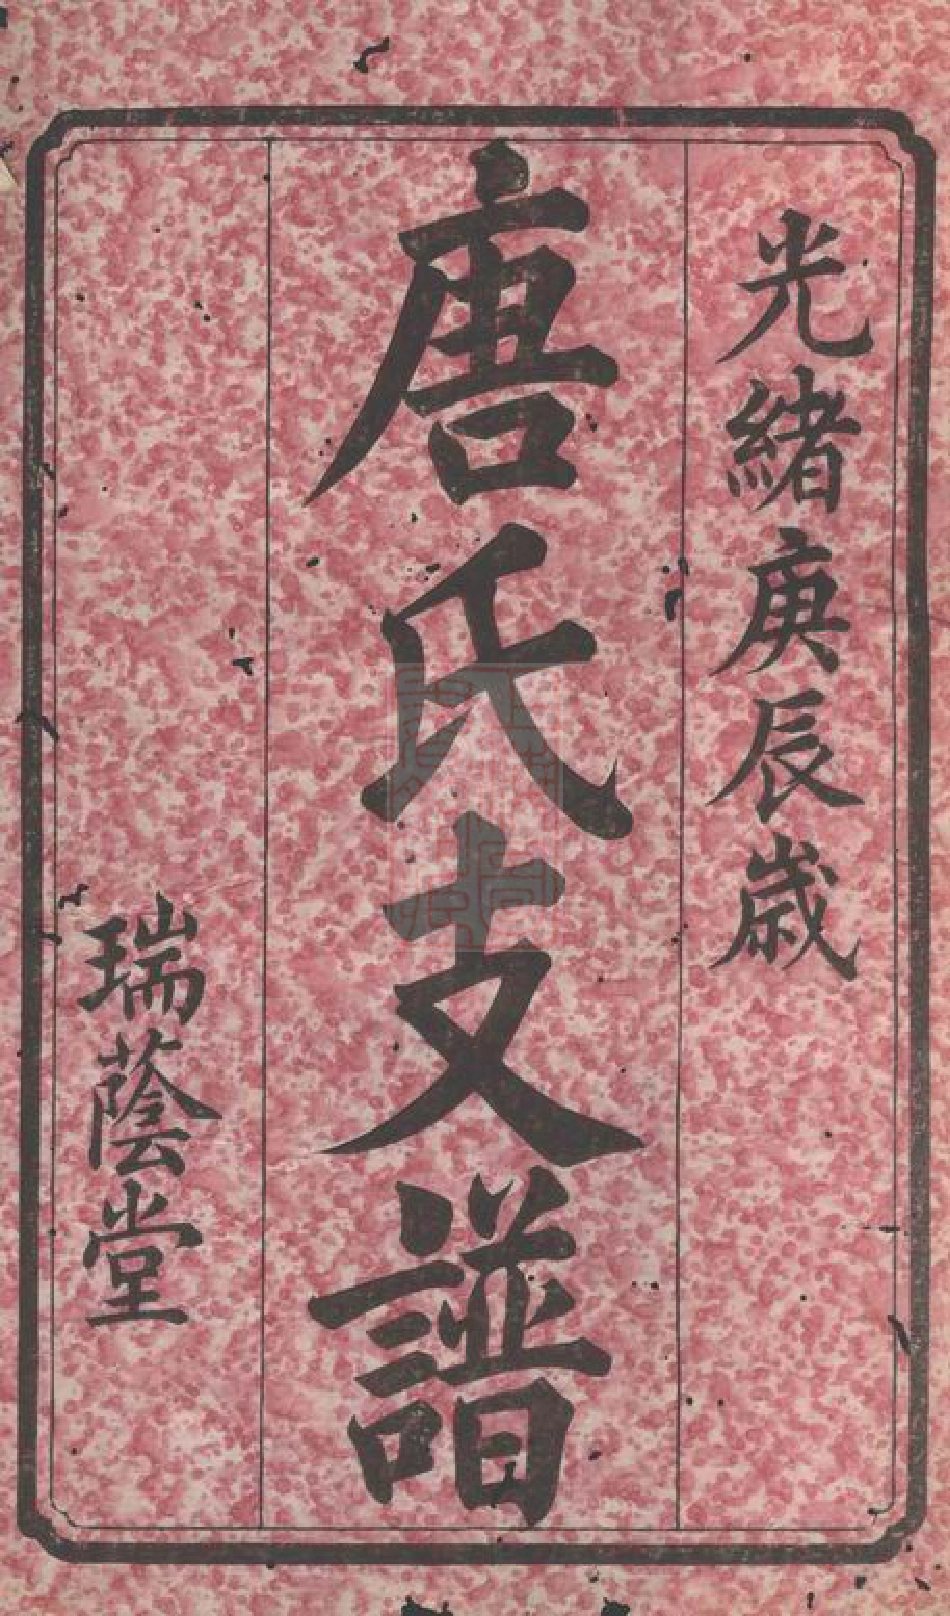 光緒庚辰歲
唐氏支譜
瑞蔭堂